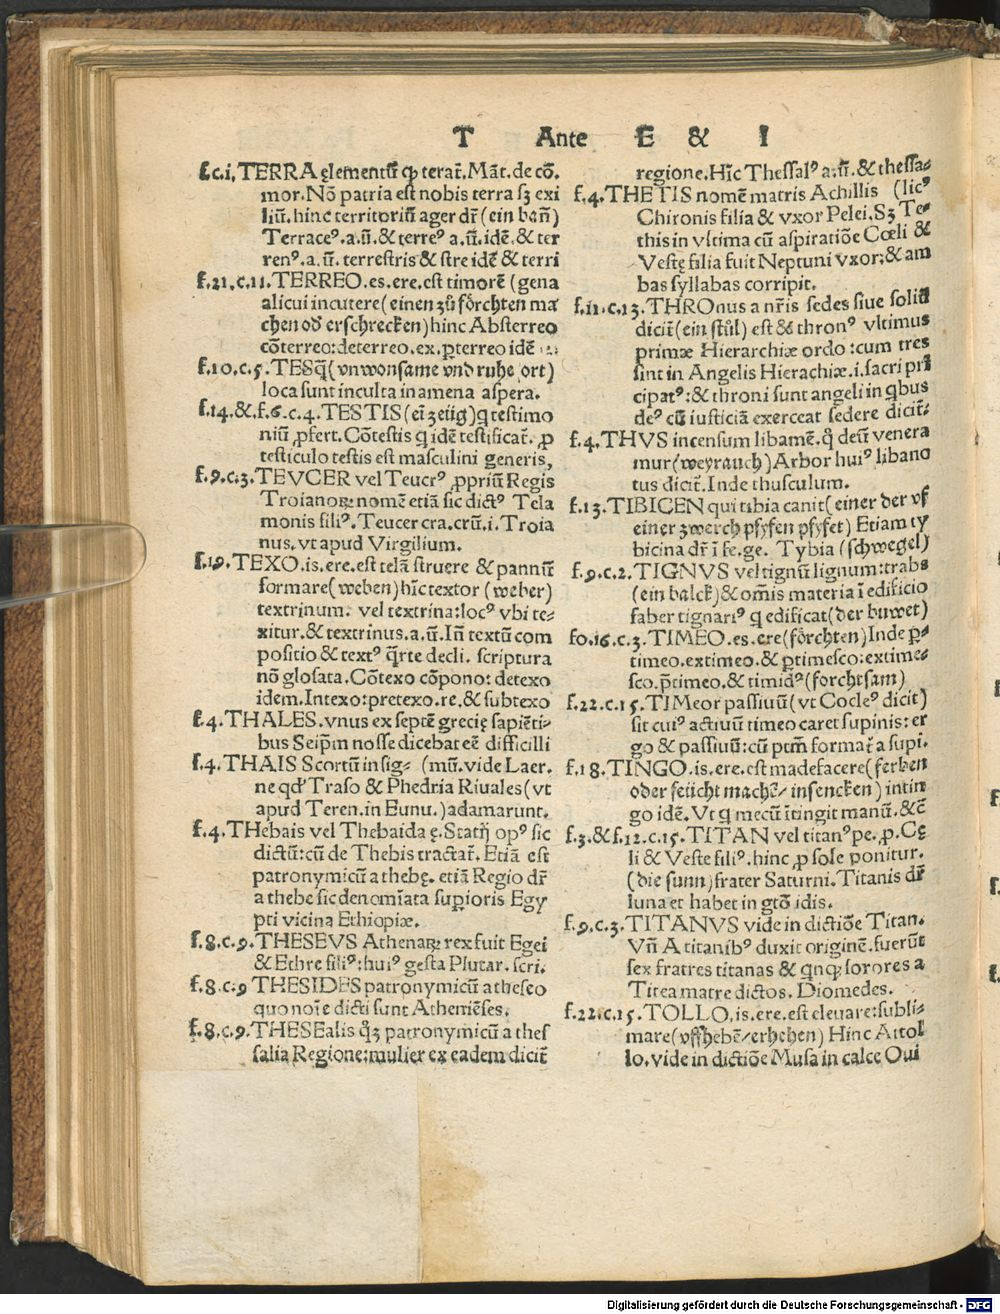 T Ante E & I
f.c.i. TERRA ęlementũ ꝙ terat̃. Mãt. de cõ.
mor. Nõ patria est nobis terra sꝫ exi
liũ. hinc territoriũ ager dr̃ (ein bañ)
Terraceꝰ. a. ũ. & terreꝰ a. ũ. idẽ. & ter
renꝰ. a. ũ. terrestris & stre idẽ & terri
f.21.c.11. TERREO. es. ere. est timorẽ (gena
alicui incutere (einen zů förchten ma
chen oď erschrecken) hinc Absterreo
cõterreo: deterreo. ex. ꝑterreo idẽ
f.10.c.5. TESq̃ (vnwonsame vnd ruhe ort)
loca sunt inculta inamena aspera.
f.14.&.f.6.c.4. TESTIS (eĩ zeüg) q testimo
niũ ꝓfert. Cõtestis q idẽ testificat̃. ꝓ
testiculo testis est masculini generis,
f.9.c.3. TEVCER vel Teucrꝰ ꝓpriũ Regis
Troianoꝝ nomẽ etiã sic dictꝰ Tela
monis filiꝰ. Teucer cra. crũ. i. Troia
nus. vt apud Virgilium.
f.19. TEXO. is. ere. est telã struere & pannũ
formare (weben) hĩc textor (weber)
textrinum. vel textrina: locꝰ vbi te⸗
xitur. & textrinus. a. ũ. Iñ textũ com
positio & textꝰ q̃rte decli. scriptura
nõ glosata. Cõtexo cõpono: detexo
idem. Intexo: pretexo. re. & subtexo
f.4. THALES. vnus ex septẽ grecię sapiẽti⸗
bus Seip̃m nosse dicebat eẽ difficilli
f.4. THAIS Scortũ insig⸗ (mũ. vide Laer.
ne qď Traso & Phedria Riuales (vt
apud Teren. in Eunu.) adamarunt.
f.4. THebais vel Thebaida ę. Statĳ opꝰ sic
dictũ: cũ de Thebis tractat̃. Etiã est
patronymicũ a thebę. etiã Regio dr̃
a thebe sic denomĩata supioris Egy
pti vicina Ethiopiæ.
f.8.c.9. THESEVS Athenaꝝ rex fuit Egei
& Ethre filiꝰ: huiꝰ gesta Plutar. scri.
f.8.c.9 THESIDES patronymicũ a theseo
quo noĩe dicti sunt Atheniẽses.
f.8.c.9. THESEalis q̃ꝫ patronymicũ a thes
salia Regione: mulier ex eadem dicit̃
regione. Hĩc Thessalꝰ a. ũ. & thessa⸗
f.4. THETIS nomẽ matris Achillis (licꝰ
Chironis filia & vxor Pelei. Sꝫ Te⸗
this in vltima cũ aspiratiõe Cœli &
Vestę filia fuit Neptuni vxor: & am
bas syllabas corripit.
f.11.c.13. THROnus a nr̃is sedes siue soliũ
dicit̃ (ein stůl) est & thronꝰ vltimus
primæ Hierarchiæ ordo: cum tres
sint in Angelis Hierachiæ. i. sacri pr̃i
cipatꝰ: & throni sunt angeli in qbus
deꝰ cũ iusticiã exerceat sedere dicit̃:
f.4. THVS incensum libamẽ. q̃ deũ venera
mur (weyrauch) Arbor huiꝰ libano
tus dicit̃. Inde thusculum.
f.13. TIBICEN qui tibia canit (einer der vf
einer zwerch pfyfen pfyfet) Etiam ty
bicina dr̃ ĩ fe. ge. Tybia (schwegel)
f.9.c.2. TIGNVS vel tignũ lignum: trabs
(ein balck) & om̃is materia ĩ edificio
faber tignariꝰ q edificat (der buwet)
fo.16.c.3. TIMEO. es. ere (förchten) Inde ꝑ⸗
timeo. extimeo. & ꝑtimesco: extime⸗
sco. p̃timeo. & timidꝰ (forchtsam)
f.22.c.15. TIMeor passiuũ (vt Cocleꝰ dicit)
sit cuiꝰ actiuũ timeo caret supinis: er
go & passiuũ: cũ ptm̃ format̃ a supi.
f.18. TINGO. is. ere. est madefacere (ferben
oder feücht machẽ/ insencken) intin
go idẽ. Vt q mecũ ĩtingit manũ. &c̃
f.3.&f.12.c.15. TITAN vel titanꝰ pe. ꝓ. Cę
li & Veste filiꝰ. hinc ꝓ sole ponitur.
(die sunn) frater Saturni. Titanis dr̃
luna et habet in gtõ idis.
f.9.c.3. TITANVS vide in dictiõe Titan.
Vñ A titanibꝰ duxit originẽ. fuerũt
sex fratres titanas & qnqꝫ sorores a
Titea matre dictos. Diomedes.
f.22.c.15. TOLLO, is. ere. est eleuare: subli⸗
mare (vffhebẽ/ erhehen) Hinc Attol
lo. vide in dictiõe Musa in calce Oui
Digitalisierung gefördert durch die Deutsche Forschungsgemeinschaft - DFG